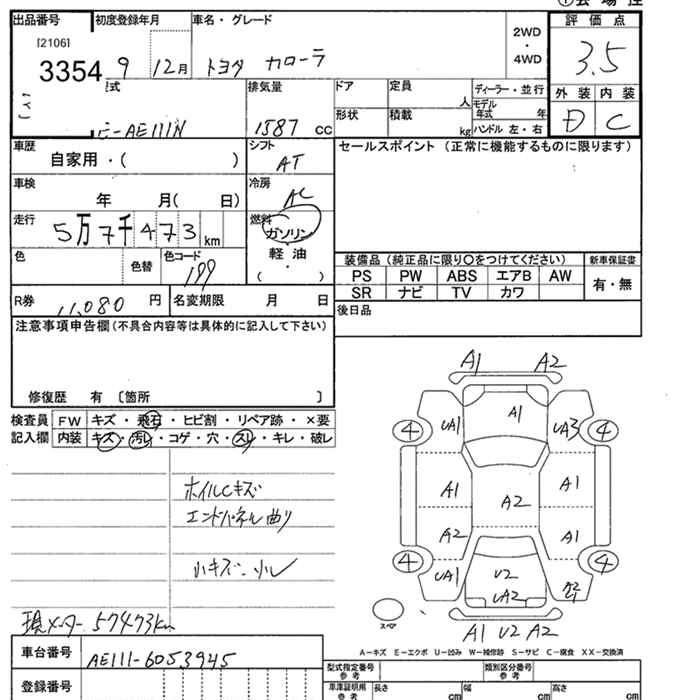 出品番号 初度登録年月 車名・グレード 2WD・4WD 評価点
[2106]
3354 9 12月 トヨタ カローラ 3.5
型式 排気量 ドア 定員 人 ディーラー・並行 外装 内装
E-AE111N 1587 cc 形状 積載 kg モデル年式 年 ハンドル 左・右 D C
車歴 自家用・( ) シフト AT セールスポイント (正常に機能するものに限ります)
車検 年 月( 日) 冷房 AC
走行 5万7千473 km 燃料 ガソリン
色 色替 色コード 199 軽油 ( )
装備品 (純正品に限り○をつけてください) 新車保証書
PS PW ABS エアB AW 有・無
SR ナビ TV カワ
R券 11,080 円 名変期限 月 日
後日品
注意事項申告欄 (不具合内容等は具体的に記入して下さい)
修復歴 有 〔箇所 〕
検査員 FW キズ・飛石・ヒビ割・リペア跡・×要
記入欄 内装 キズ・汚レ・コゲ・穴・スレ・キレ・破レ
ホイルCキズ
エンドパネル曲り
小キズ・凹
現メーター 57473km
A1 A2
UA1 A1 UA3
4 4
A1 A2 A1
A2 A1
4 4
UA1 U2
UA2
スペア
A1 U2 A2
A-キズ E-エクボ U-凹み W-補修跡 S-サビ C-腐食 XX-交換済
車台番号 AE111-6053945
登録番号
型式指定番号 参考 類別区分番号 参考
車庫証明用 参考 長さ cm 幅 cm 高さ cm